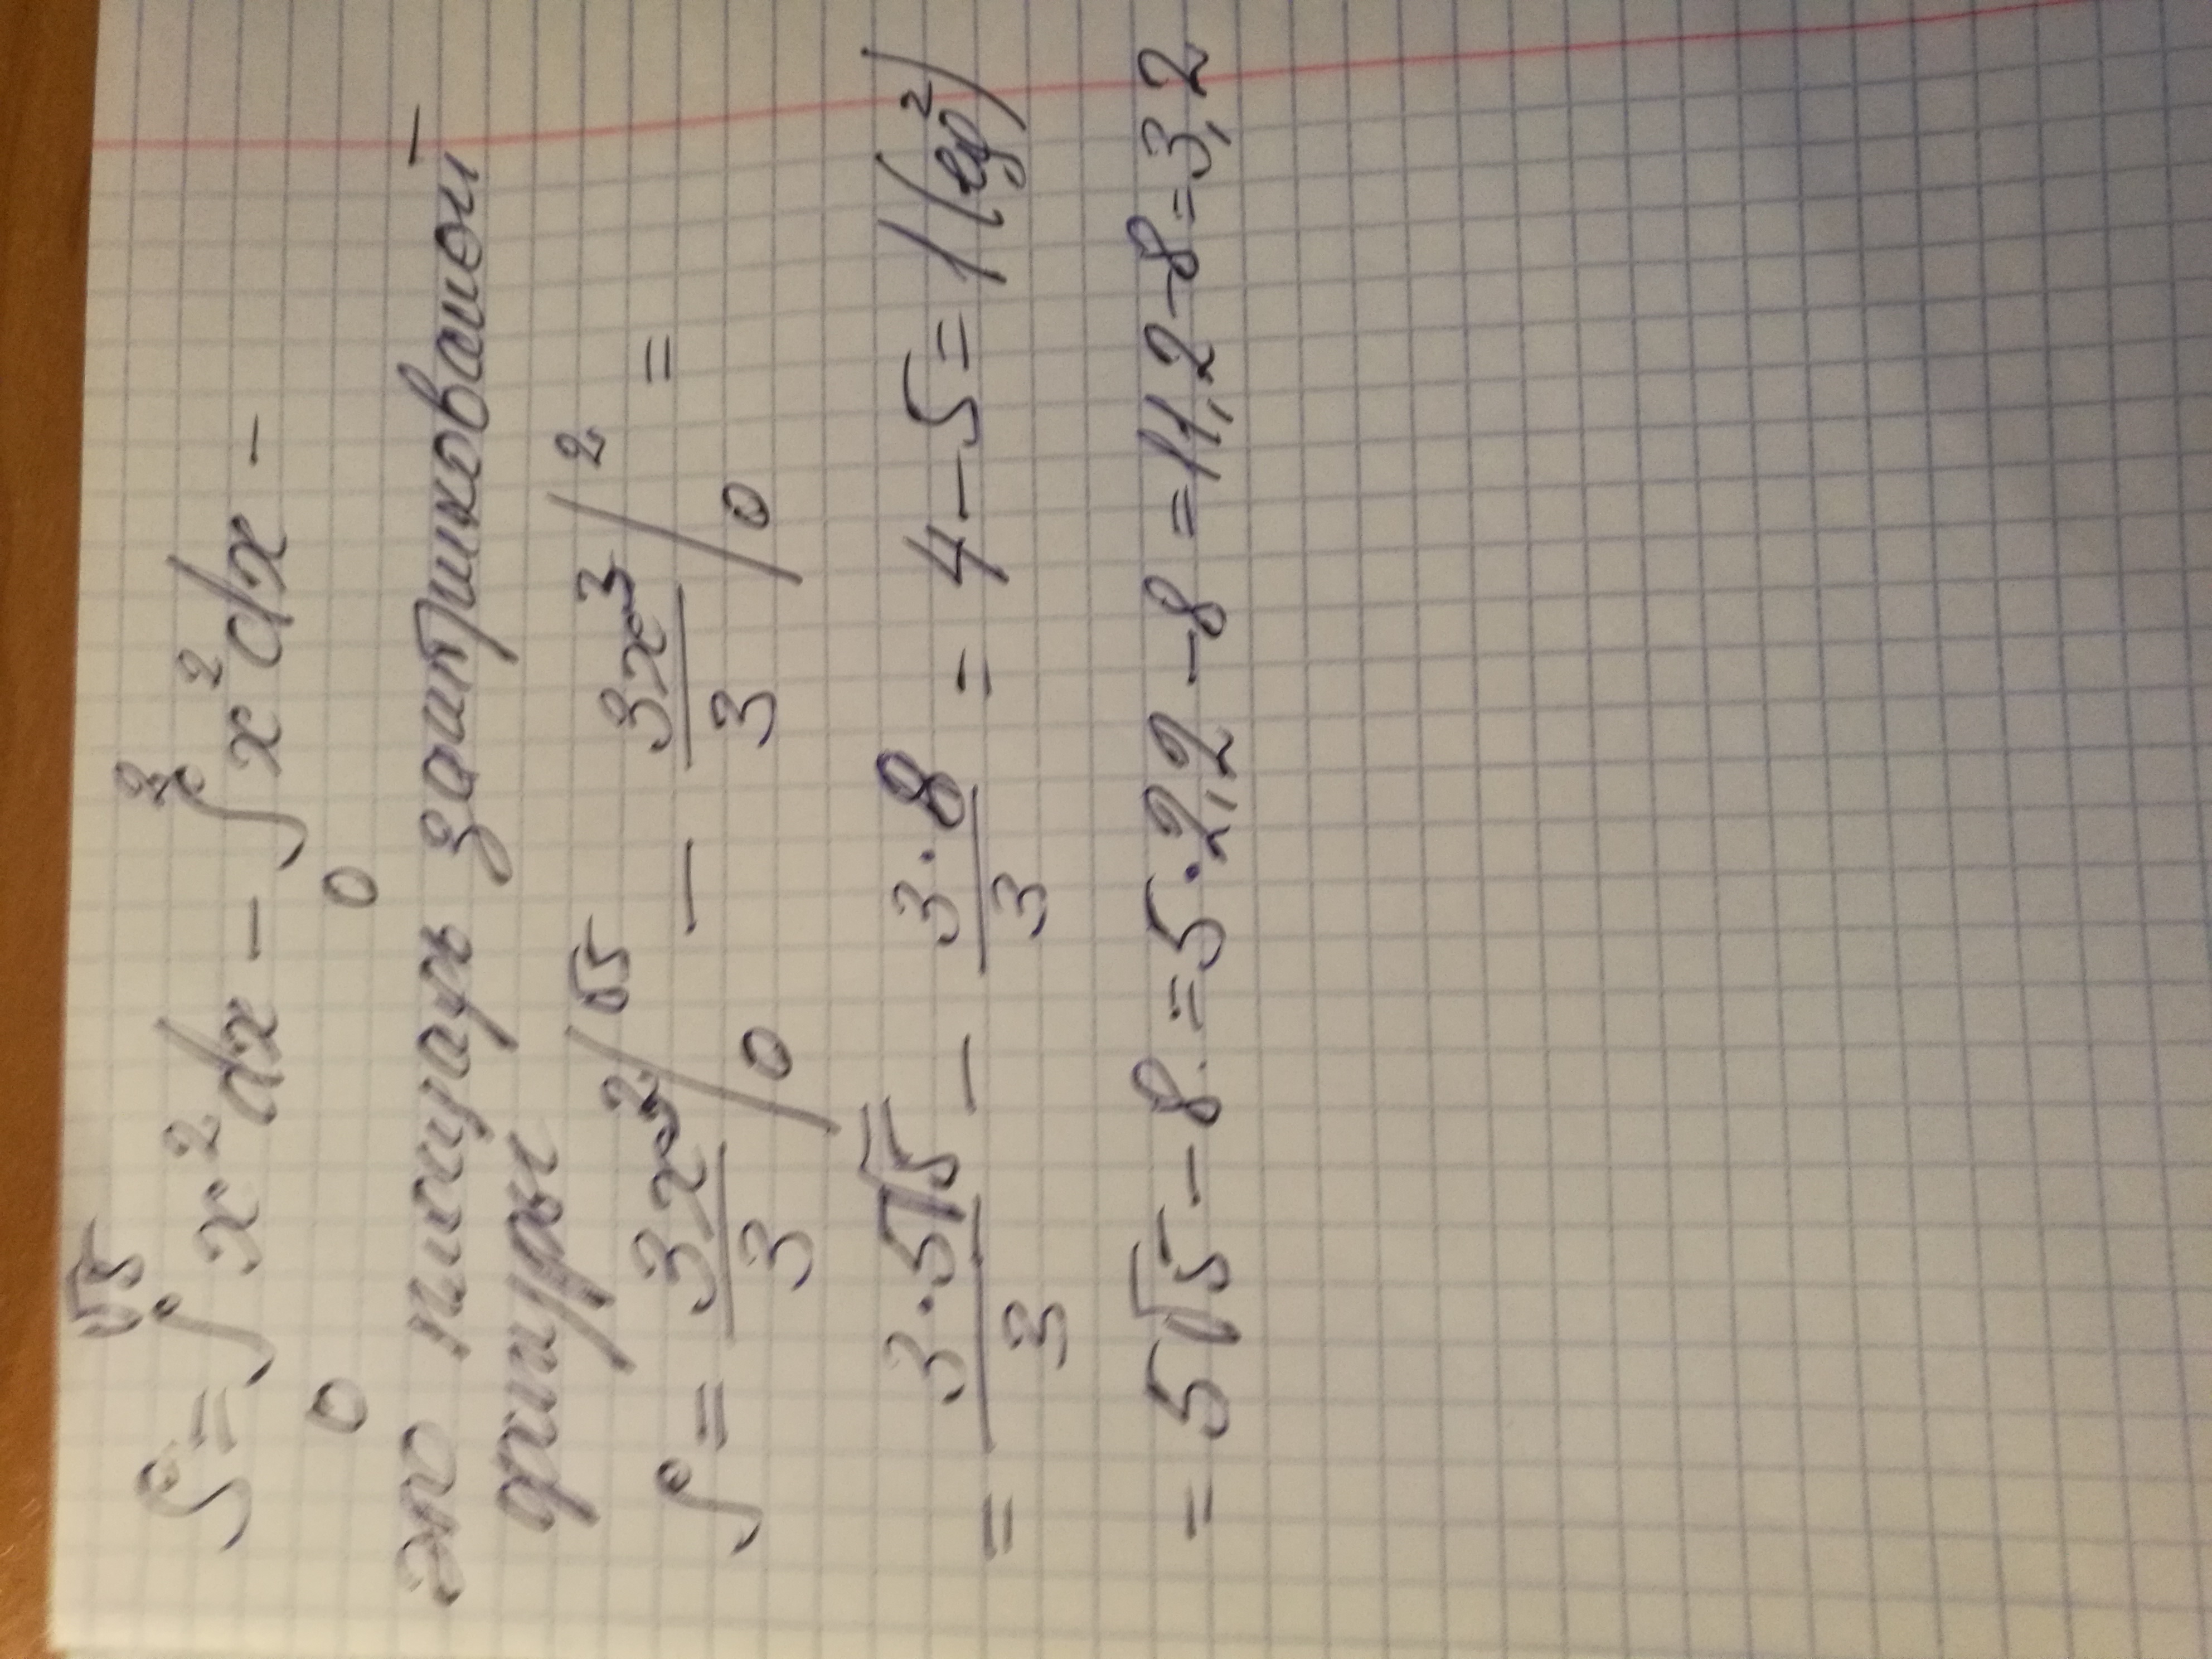 S = ∫₀^√5 x² dx - ∫₀² x² dx -
это площадь заштрихованной
фигуры
S = 3x³/3 |₀^√5 - 3x³/3 |₀² =
= 3·5√5/3 - 3·8/3 = 4-5 = 1 (ед²)
= 5√5 - 8 = 5·2,2 - 8 = 11,2 - 8 = 3,2